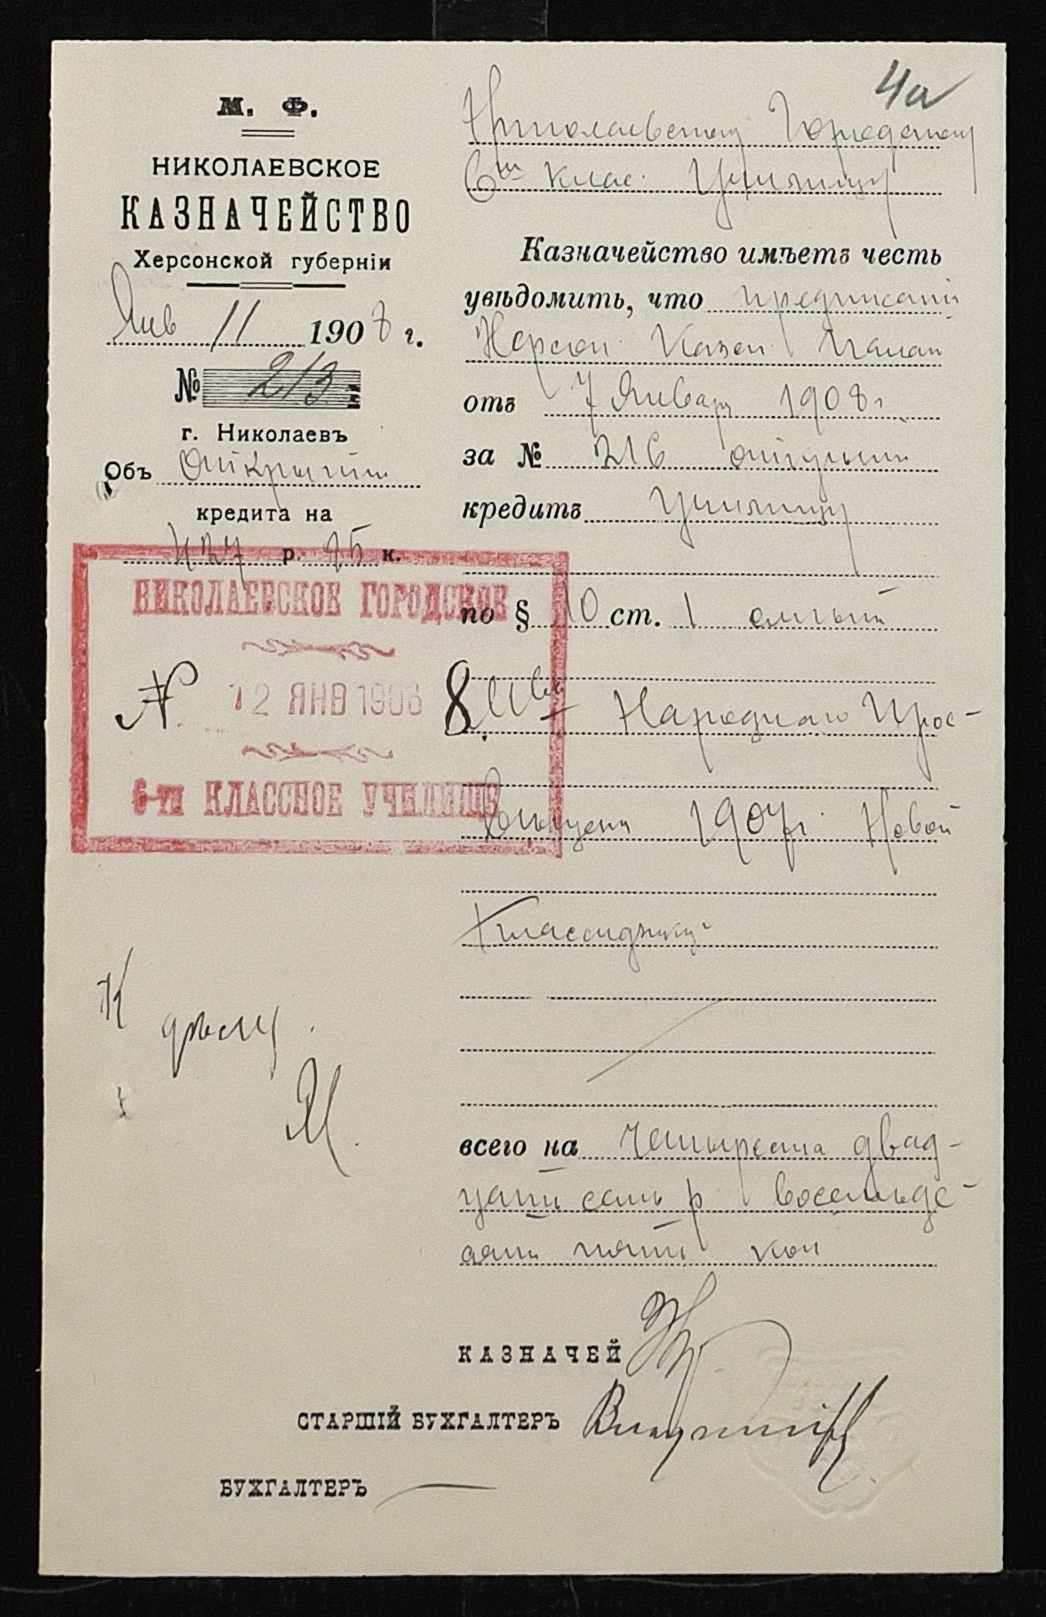 4а
М. Ф.
НИКОЛАЕВСКОЕ
КАЗНАЧЕЙСТВО
Херсонской губерніи
Янв 11 1908 г.
№ 213
г. Николаевъ
Объ открытіи
кредита на
427 р. 85 к.
НИКОЛАЕВСКОЕ ГОРОДСКОЕ
№ 12 ЯНВ 1908 8.
6-ти КЛАССНОЕ УЧИЛИЩЕ
К дѣлу.
Николаевскому Городскому
6ти клас. Училищу
Казначейство имѣетъ честь
увѣдомить, что предписаніи
Херсон. Казен. Палат
отъ 7 Января 1908 г.
за № 216 открыт
кредитъ Училищу
по § 10 ст. 1 смѣты
Мва Народнаго Прос-
вѣщенія 1907 г. Новой
Классификац.
всего на Четыреста двад-
цать семь р восемьде-
сят пять коп
КАЗНАЧЕЙ
СТАРШІЙ БУХГАЛТЕРЪ
БУХГАЛТЕРЪ